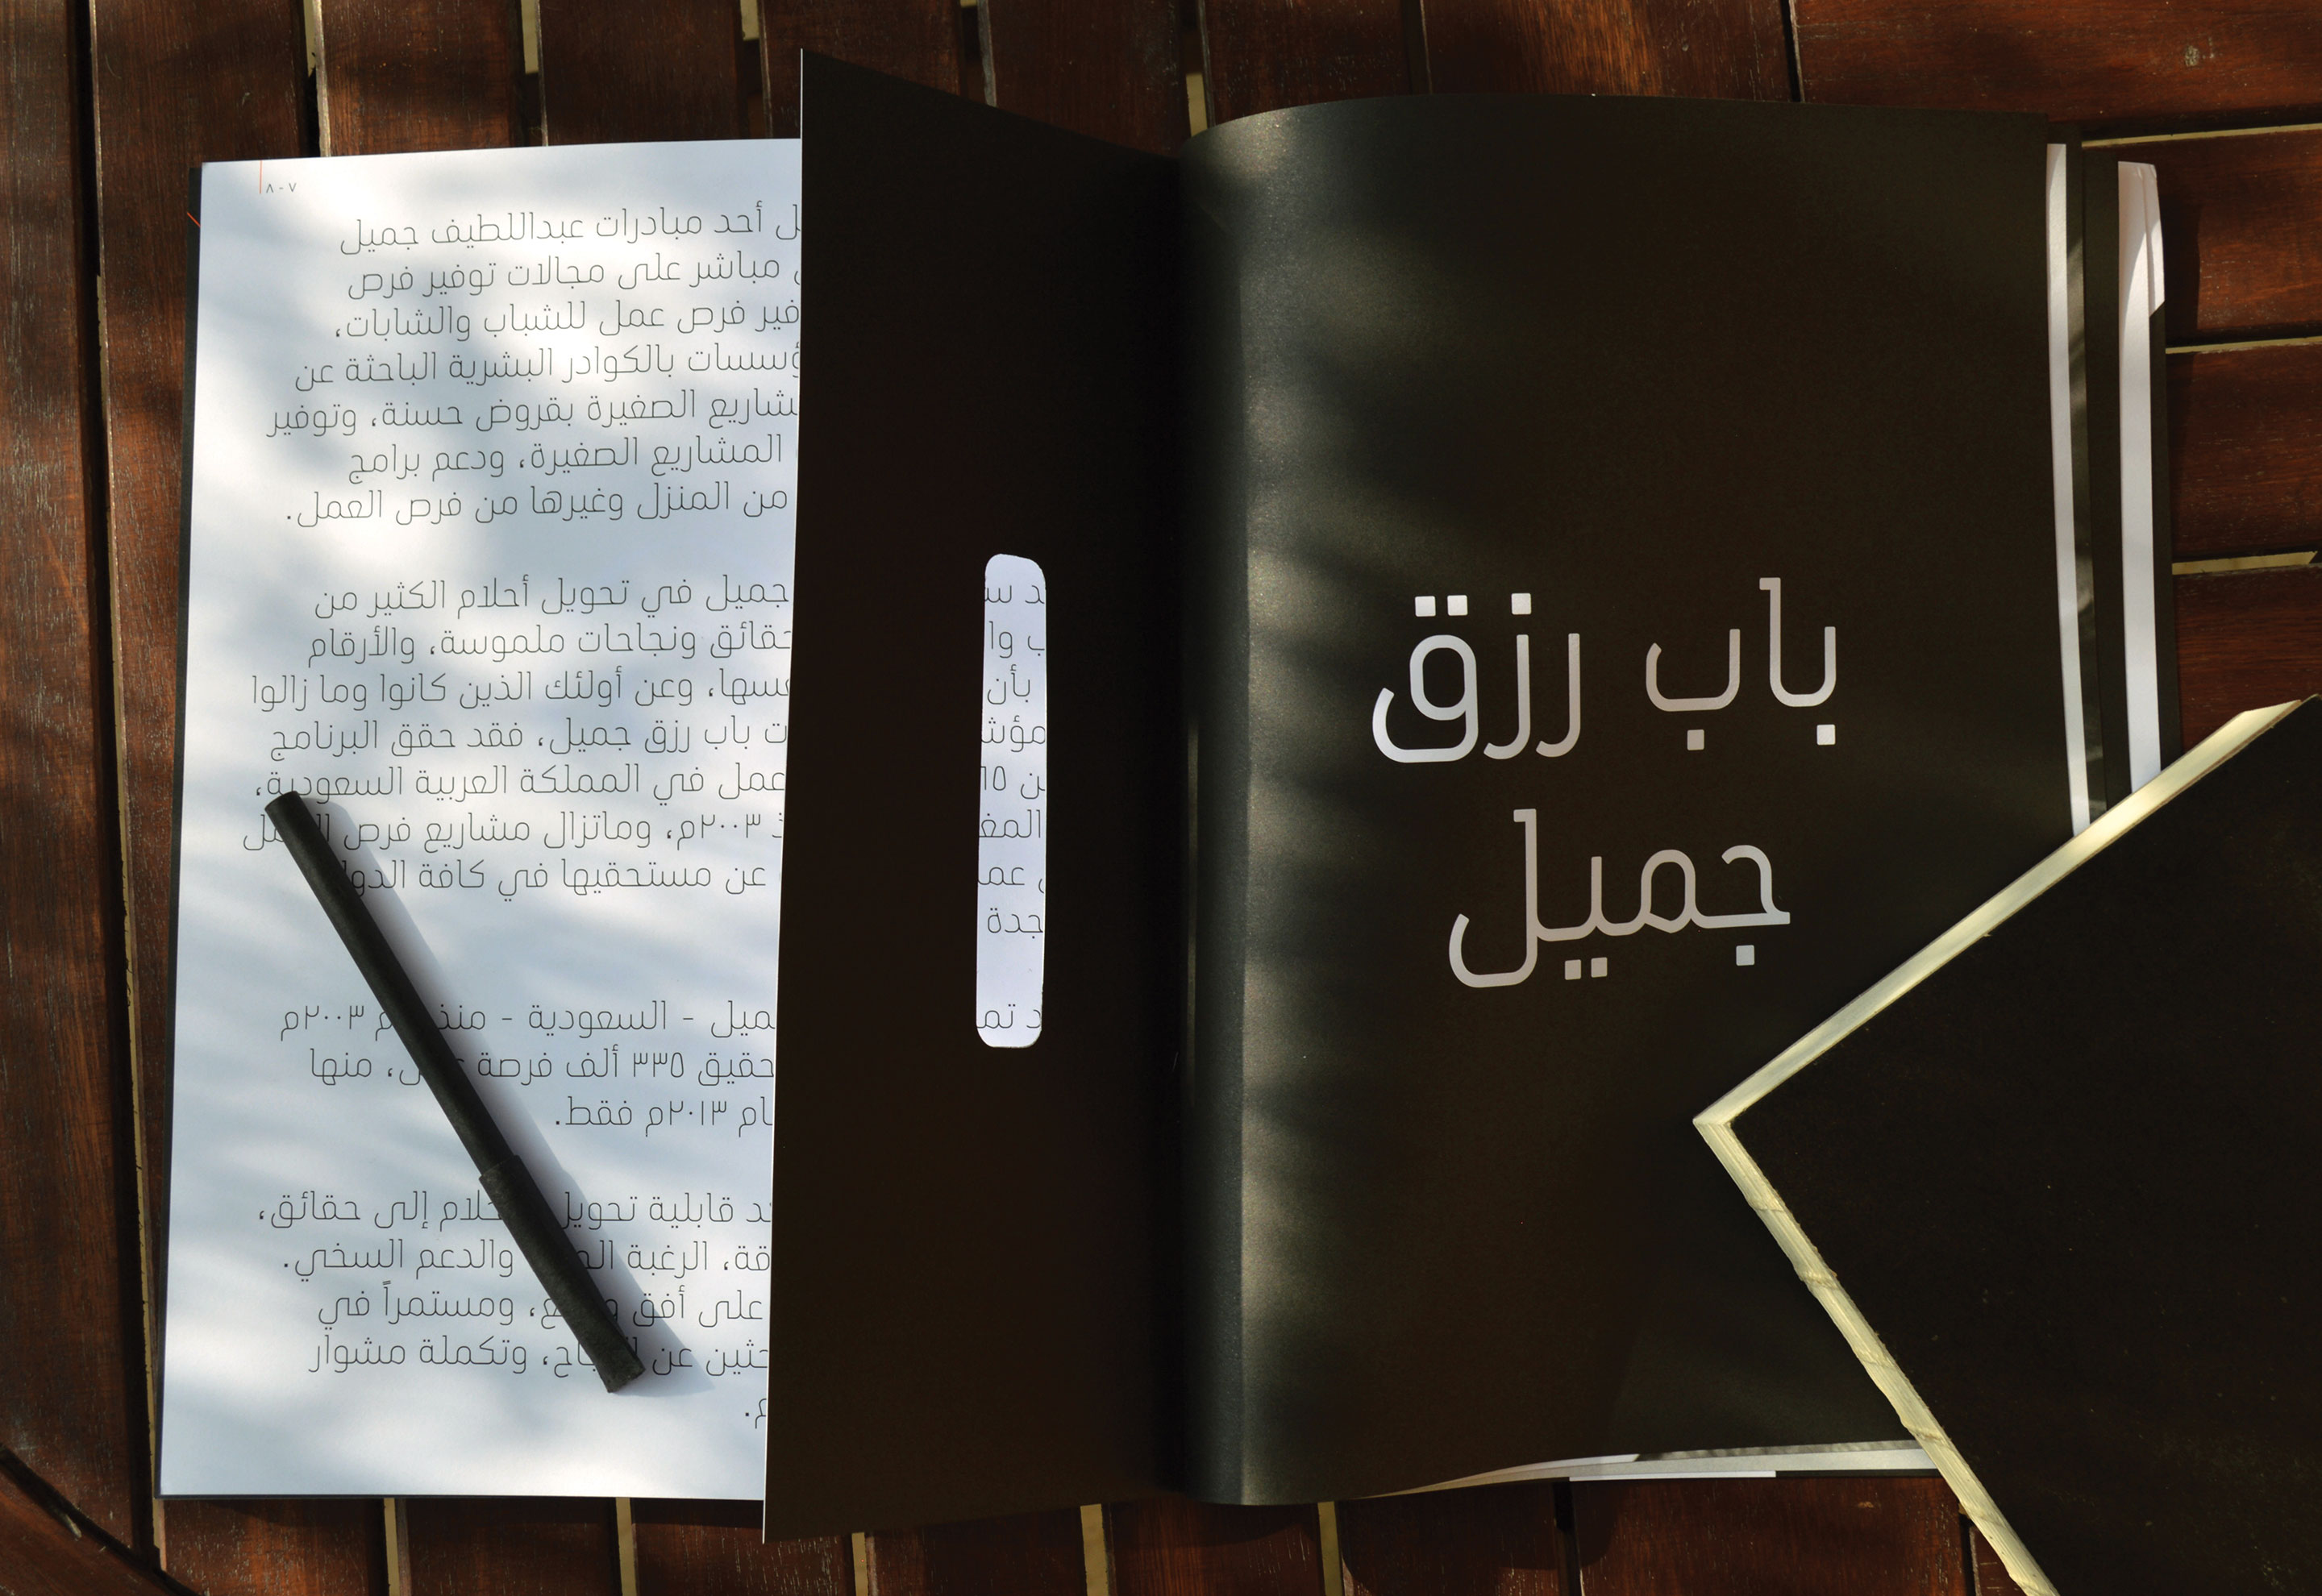 باب رزق
جميل
٧-٨
أحد مبادرات عبداللطيف جميل
مباشر على مجالات توفير فرص
فرص عمل للشباب والشابات،
بالكوادر البشرية الباحثة عن
الصغيرة بقروض حسنة، وتوفير
المشاريع الصغيرة، ودعم برامج
من المنزل وغيرها من فرص العمل.
جميل في تحويل أحلام الكثير من
ونجاحات ملموسة، والأرقام
وعن أولئك الذين كانوا وما زالوا
باب رزق جميل، فقد حقق البرنامج
بأن
في المملكة العربية السعودية،
٢٠٠٣م، وماتزال مشاريع فرص
عن مستحقيها في كافة
جدة
- السعودية - منذ ٢٠٠٣م
٣٣٥ ألف فرصة منها
٢٠١٣م فقط.
قابلية تحويل إلى حقائق،
الرغبة والدعم السخي.
على أفق ومستمراً في
عن وتكملة مشوار